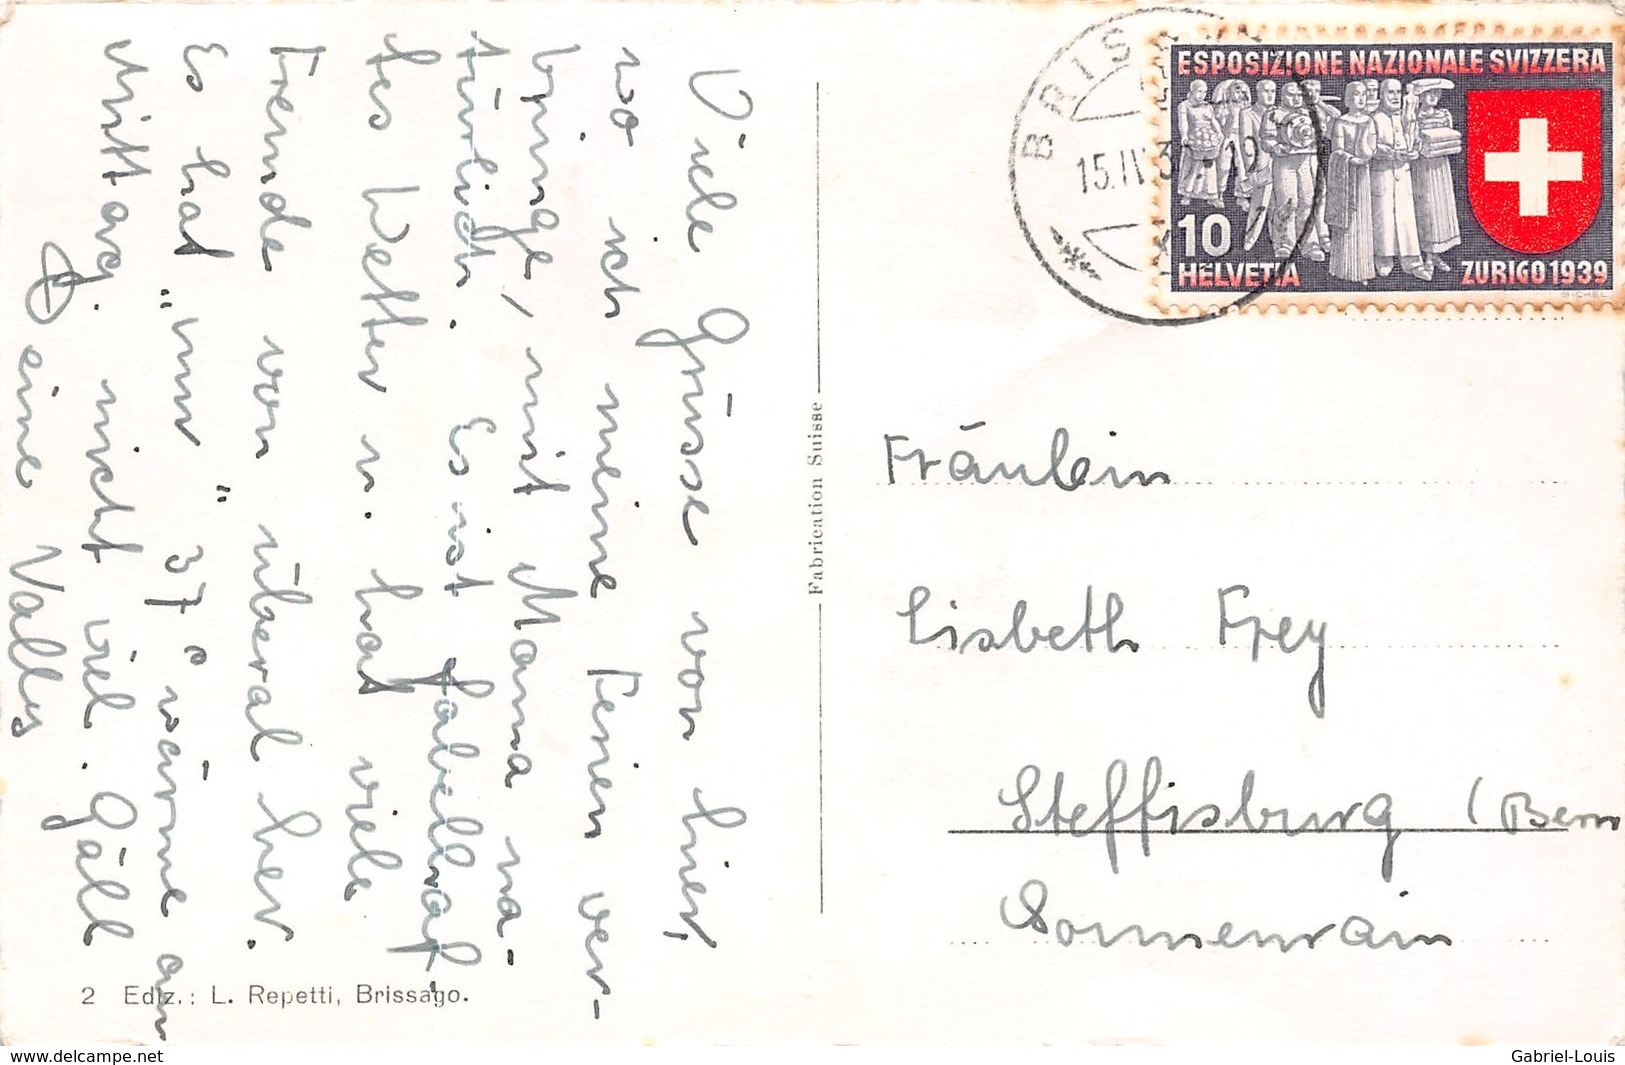 Viele Grüsse von hier,
wo ich meine Ferien ver-
bringe, mit Mama na-
türlich. Es ist fabelhaf-
tes Wetter u. hat viele
Fremde von überal her.
Es hat "nur" 37° wärme am
Mittag. nicht viel. Gäll
Deine Vally
2 Ediz.: L. Repetti, Brissago.
Fabrication Suisse
15.IV.39.-19
ESPOSIZIONE NAZIONALE SVIZZERA
10
HELVETIA
ZURIGO 1939
BICKEL
Fräulein
Lisbeth Frey
Steffisburg (Bern
Sonnenrain
www.delcampe.net
Gabriel-Louis